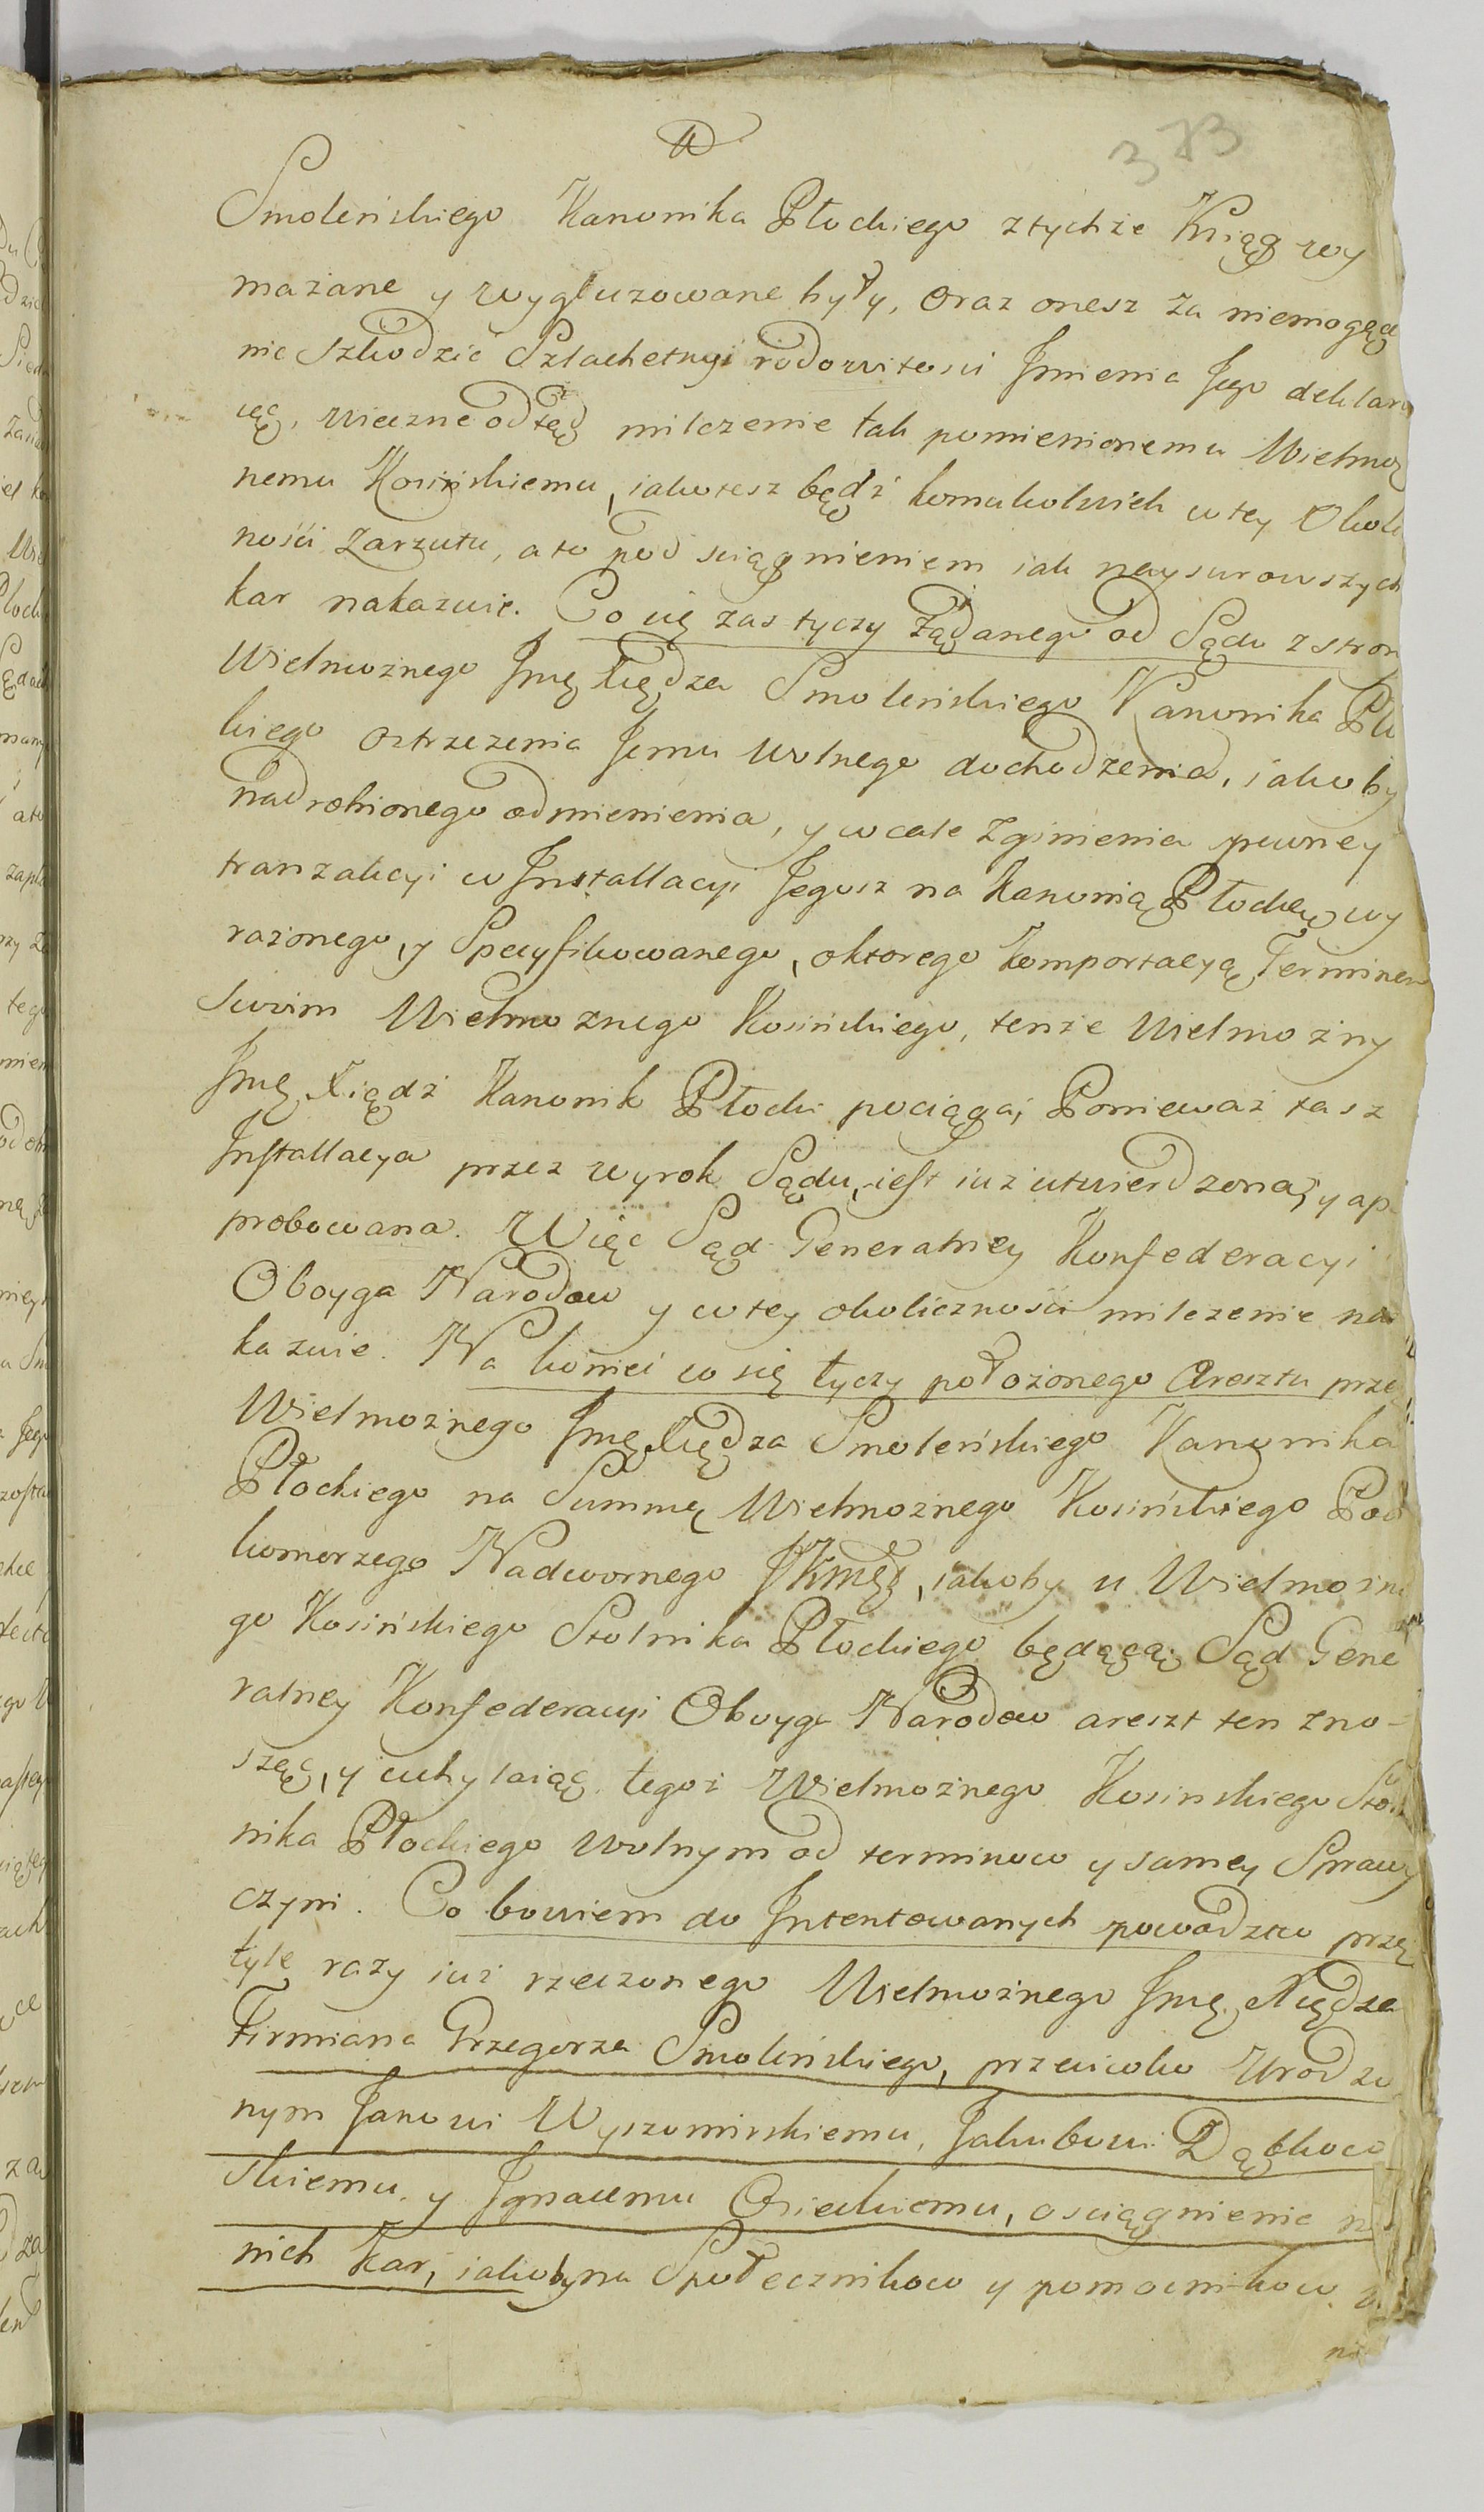 373
Smoleńskiego Kanonika Płockiego z tychże Xiąg wy
mazane y wygluzowane były, oraz onesz za niemogące
nic szkodzić Szlachetnyi rodowitosci Jmienia Jego deklaru
iąc, wieczne odtąd milczenie tak pomienionemu Wielmoż
nemu Kosińskiemu, iakotesz bądź komukolwiek w tey Okolicz
ności Zarzutu, a to pod sciągnieniem iak naysurowszych
kar nakazuie. Co się zas tyczy żądanego od Sądu z strony
Wielmożnego Jmę Xiędza Smoleńskiego Kanonika Płoc
kiego ostrzeżenia Jemu wolnego dochodzenia, iakoby
nadrobionego odmienienia, y wcale zginienia pewney
tranzakcyi w Jnstallacyi Jegosz na Kanonią Płocką wy
rażonego, y Specyfikowanego, o którego komportacyą Terminem
swoim Wielmożnego Kosińskiego, tenże Wielmożny
Jmę Xiądz Kanonik Płocki pociąga, Ponieważ tasz
Jnstallacya przez wyrok Sądu, iest iuż utwierdzona, y ap
probowana. Więc Sąd Generalney Konfederacyi
Oboyga Narodow y w tey okoliczności milczenie na
kazuie. Na koniec co się tyczy położonego Aresztu przez
Wielmożnego Jmę Xiędza Smoleńskiego Kanonika
Płockiego na Summę Wielmożnego Kosińskiego Pod
komorzego Nadwornego JKMći, iakoby u Wielmożne
go Kosińskiego Stolnika Płockiego będącą; Sąd Gene
ralney Konfederacyi Oboyga Narodow areszt ten zno-
sząc, y uchylaiąc tegoż Wielmożnego Kosinskiego Stol
nika Płockiego wolnym od terminow y samey Sprawy
czyni. Co bowiem do Jntentowanych powodztw przez
tyle razy iuż rzeczonego Wielmożnego Jmę Xiędza
Firmiana Grzegorza Smoleńskiego, przeciwko Urodzo
nym Janowi Wyszomirskiemu, Jakubowi Dąbkow
skiemu y Jgnacemu Osieckiemu, o sciągnienie na
nich kar, iakoby na Społecznikow y pomocnikow